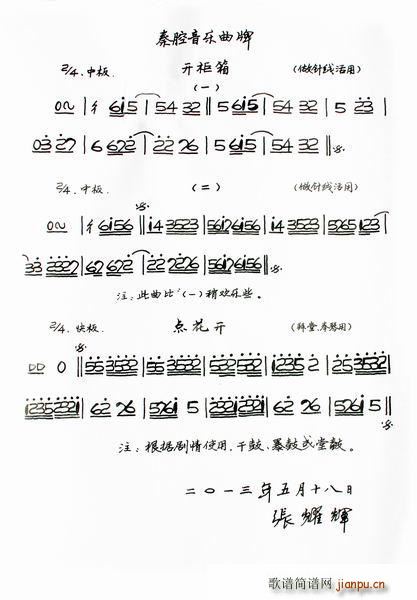 秦腔音乐曲牌
2/4.中板. 开柜箱 (做针线活用)
(一)
0 | 6i5 | 54 32 || 5 6i5 | 54 32 | 5 23 |
03 27 | 6 622 | 22 26 | 5 6i5 | 54 32 ||
2/4.中板. (二) (做针线活用)
0 | 6i56 || i4 3523 | 56i26i56 | i4 3523 | 5265i23 |
33 2327 | 62 622 | 22 2226 | 56i26i56 ||
注:此曲比"(一)稍欢乐些。
2/4.快板. 点花开
0 || 55 3532 | 55 3532 | i235 2321 | 25 3532 |
i235 2321 | 62 26 | 526i 5 | i235 2321 | 62 26 | 526i 5 ||
注:根据剧情使用.干鼓、暴鼓或堂鼓。
二〇一三年五月十八日
張耀輝
歌谱简谱网
jianpu.cn